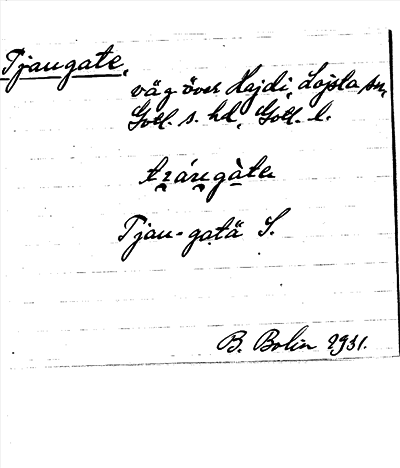 Tjaugate,
väg över Hajdi, Lojsta sn,
Gotl. s. hd, Gotl. l.
Tjau-gatä S.
B. Bolin 1931.